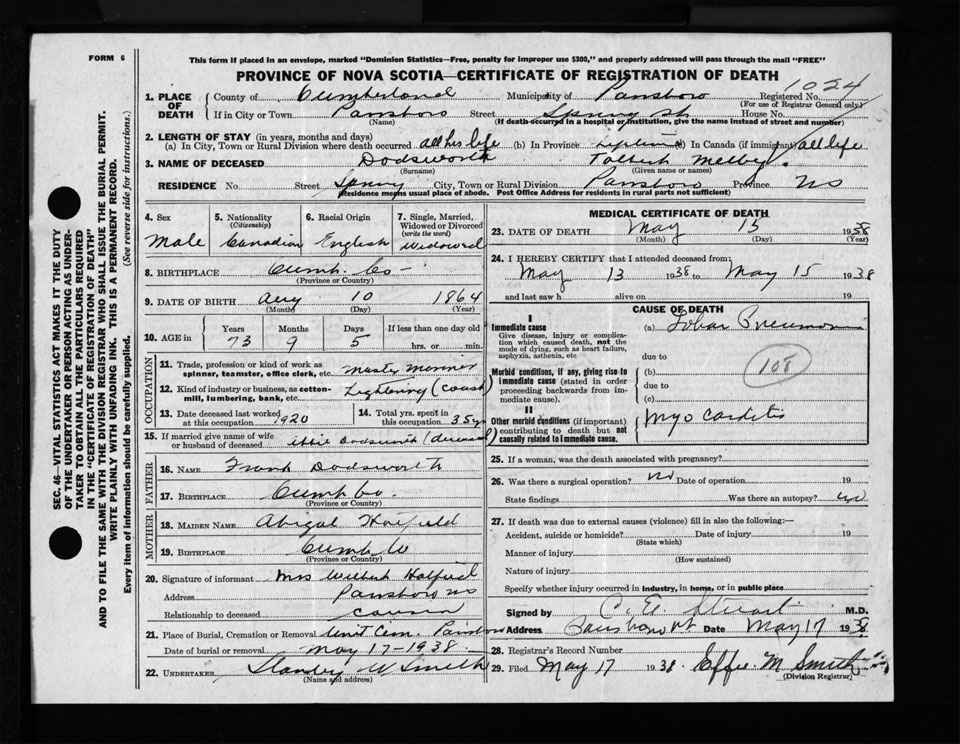 FORM 6
This form if placed in an envelope, marked "Dominion Statistics—Free, penalty for improper use $300," and properly addressed will pass through the mail "FREE"
PROVINCE OF NOVA SCOTIA—CERTIFICATE OF REGISTRATION OF DEATH
1024
1. PLACE OF DEATH County of Cumberland Municipality of Parrsboro Registered No.
(For use of Registrar General only)
If in City or Town Parrsboro Street Spring St House No.
(Name) (If death occurred in a hospital or institution, give the name instead of street and number)
2. LENGTH OF STAY (in years, months and days)
(a) In City, Town or Rural Division where death occurred all his life (b) In Province Lifetime (c) In Canada (if immigrant) all life
3. NAME OF DECEASED Dodsworth Tolbert Melby
(Surname) (Given name or names)
RESIDENCE No. Street Spring City, Town or Rural Division Parrsboro Province NS
(Residence means usual place of abode. Post Office Address for residents in rural parts not sufficient)
4. Sex Male
5. Nationality (Citizenship) Canadian
6. Racial Origin English
7. Single, Married, Widowed or Divorced (write the word) Widowed
8. BIRTHPLACE Cumb. Co
(Province or Country)
9. DATE OF BIRTH Aug 10 1864
(Month) (Day) (Year)
10. AGE in Years Months Days If less than one day old
73 9 5 hrs. or min.
OCCUPATION
11. Trade, profession or kind of work as spinner, teamster, office clerk, etc. Master Mariner
12. Kind of industry or business, as cotton-mill, lumbering, bank, etc. Lightering (Coast)
13. Date deceased last worked at this occupation 1920
14. Total yrs. spent in this occupation 35 yr
15. If married give name of wife or husband of deceased Dodsworth (deceased)
FATHER
16. NAME Frank Dodsworth
17. BIRTHPLACE Cumb Co.
(Province or Country)
MOTHER
18. MAIDEN NAME Abigal Hatfield
19. BIRTHPLACE Cumb Co
(Province or Country)
20. Signature of informant Mrs Wilbert Hatfield
Address Parrsboro NS
Relationship to deceased cousin
21. Place of Burial, Cremation or Removal Unit Cem. Parrsboro
Date of burial or removal May 17-1938
22. UNDERTAKER Stanley W Smith
(Name and address)
MEDICAL CERTIFICATE OF DEATH
23. DATE OF DEATH May 15 1938
(Month) (Day) (Year)
24. I HEREBY CERTIFY that I attended deceased from:
May 13 1938 to May 15 1938
and last saw h alive on 19
CAUSE OF DEATH
I
Immediate cause
Give disease, injury or complication which caused death, not the mode of dying, such as heart failure, asphyxia, asthenia, etc
(a) Lobar Pneumonia
due to
Morbid conditions, if any, giving rise to immediate cause (stated in order proceeding backwards from immediate cause).
(b)
due to
(c)
108
II
Other morbid conditions (if important) contributing to death but not causally related to immediate cause.
Myo Carditis
25. If a woman, was the death associated with pregnancy?
26. Was there a surgical operation? No Date of operation 19
State findings Was there an autopsy? No
27. If death was due to external causes (violence) fill in also the following:—
Accident, suicide or homicide? Date of injury 19
(State which)
Manner of injury
(How sustained)
Nature of injury
Specify whether injury occurred in industry, in home, or in public place
Signed by C. E. Stuart M.D.
Address Parrsboro Date May 17 1938
28. Registrar's Record Number
29. Filed May 17 1938 Effie M Smith
(Division Registrar)
SEC. 46—VITAL STATISTICS ACT MAKES IT THE DUTY
OF THE UNDERTAKER OR PERSON ACTING AS UNDER-
TAKER TO OBTAIN ALL THE PARTICULARS REQUIRED
IN THE "CERTIFICATE OF REGISTRATION OF DEATH"
AND TO FILE THE SAME WITH THE DIVISION REGISTRAR WHO SHALL ISSUE THE BURIAL PERMIT.
WRITE PLAINLY WITH UNFADING INK. THIS IS A PERMANENT RECORD.
Every item of information should be carefully supplied. (See reverse side for instructions.)